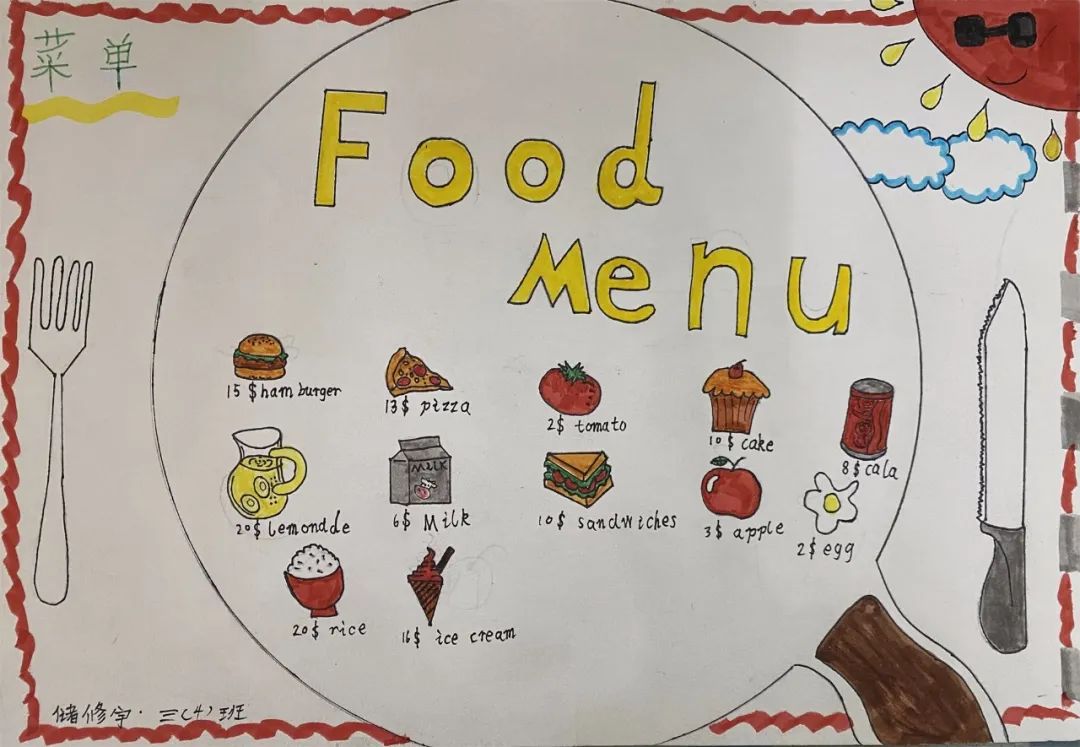 菜单
Food
Menu
15 $ hamburger
13$ pizza
2$ tomato
10$ cake
8$ cala
MILK
20$ lemondde
6$ Milk
10$ sandwiches
3$ apple
2$ egg
20$ rice
16$ ice cream
储修宇· 三(4)班